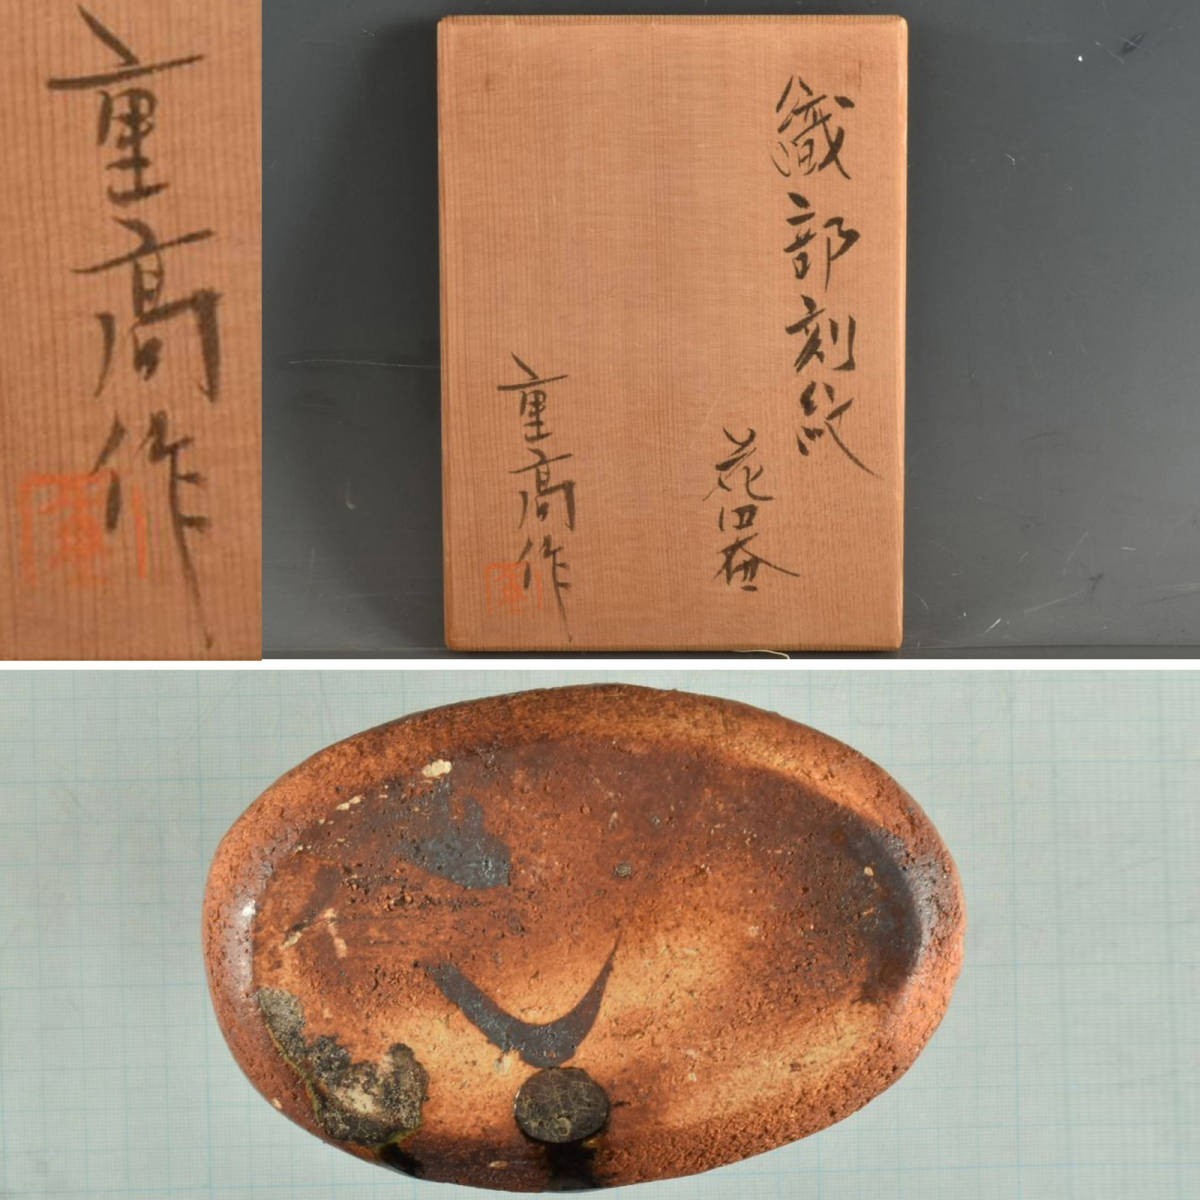 重高作
織部刻紋
花器
重高作